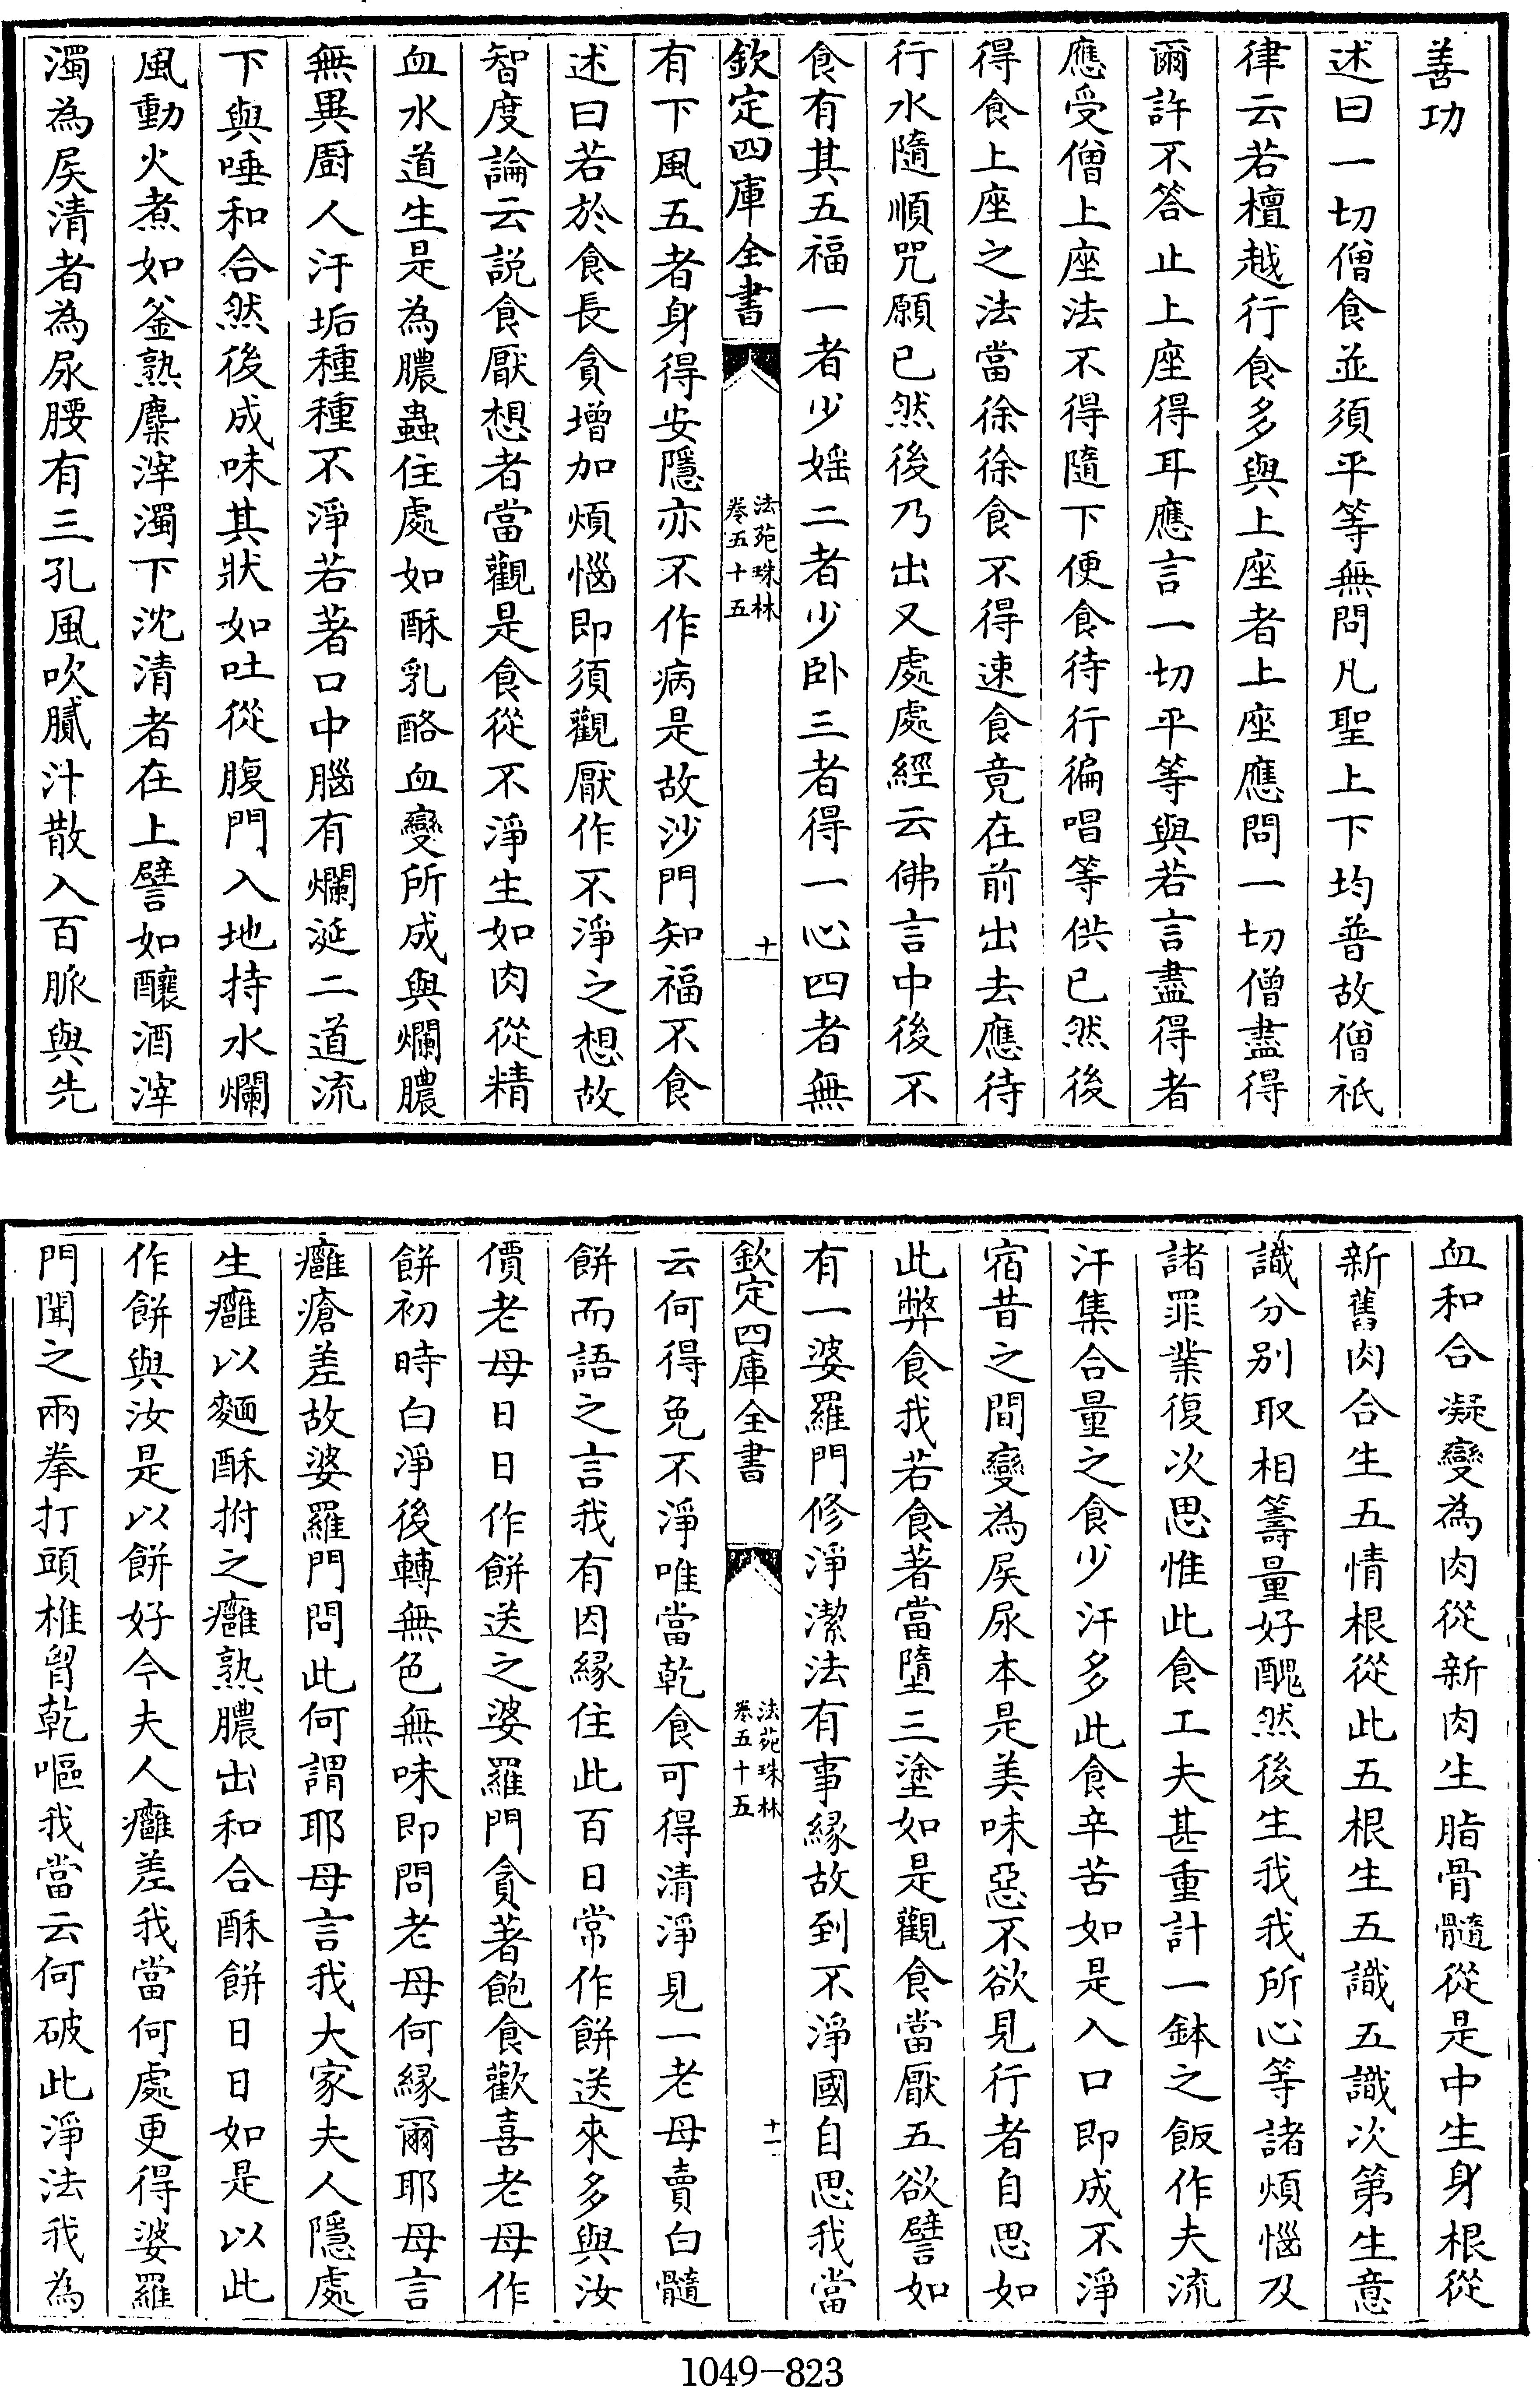 善功
述曰一切僧食並須平等無問凡聖上下均普故僧祇
律云若檀越行食多與上座者上座應問一切僧盡得
爾許不答止上座得耳應言一切平等與若言盡得者
應受僧上座法不得隨下便食待行徧唱等供已然後
得食上座之法當徐徐食不得速食竟在前出去應待
行水隨順咒願已然後乃出又處處經云佛言中後不
食有其五福一者少婬二者少卧三者得一心四者無
欽定四庫全書
法苑珠林
卷五十五
十
有下風五者身得安隱亦不作病是故沙門知福不食
述曰若於食長貪增加煩惱即須觀厭作不淨之想故
智度論云説食厭想者當觀是食從不淨生如肉從精
血水道生是為膿蟲住處如酥乳酪血變所成與爛膿
無異厨人汗垢種種不淨若著口中腦有爛涎二道流
下與唾和合然後成味其狀如吐從腹門入地持水爛
風動火煮如釜熟麋滓濁下沈清者在上譬如釀酒滓
濁為屎清者為尿腰有三孔風吹膩汁散入百脈與先
血和合凝變為肉從新肉生脂骨髓從是中生身根從
新舊肉合生五情根從此五根生五識五識次第生意
識分别取相籌量好醜然後生我我所心等諸煩惱及
諸罪業復次思惟此食工夫甚重計一鉢之飯作夫流
汗集合量之食少汗多此食辛苦如是入口即成不淨
宿昔之間變為屎尿本是美味惡不欲見行者自思如
此弊食我若食著當墮三塗如是觀食當厭五欲譬如
有一婆羅門修淨潔法有事緣故到不淨國自思我當
欽定四庫全書
法苑珠林
卷五十五
十一
云何得免不淨唯當乾食可得清淨見一老母賣白髓
餅而語之言我有因緣住此百日常作餅送來多與汝
價老母日日作餅送之婆羅門貪著飽食歡喜老母作
餅初時白淨後轉無色無味即問老母何緣爾耶母言
癰瘡差故婆羅門問此何謂耶母言我大家夫人隱處
生癰以麵酥拊之癰熟膿出和合酥餅日日如是以此
作餅與汝是以餅好今夫人癰差我當何處更得婆羅
門聞之兩拳打頭椎胷乾嘔我當云何破此淨法我為
1049-823